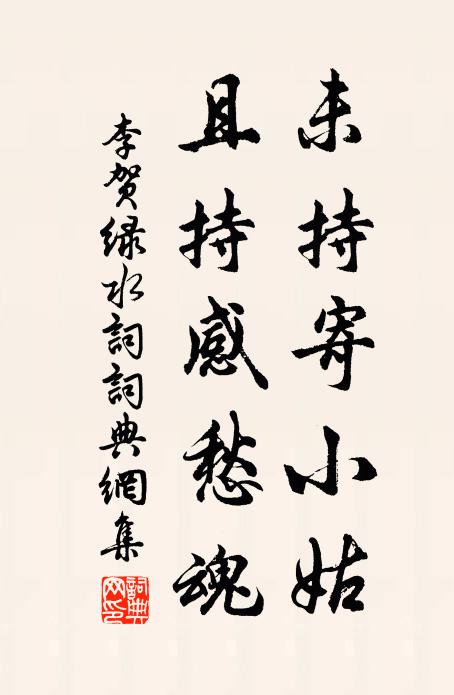 未持寄小姑
且持感愁魂
李贺绿水詞詞典網集
詞典网印